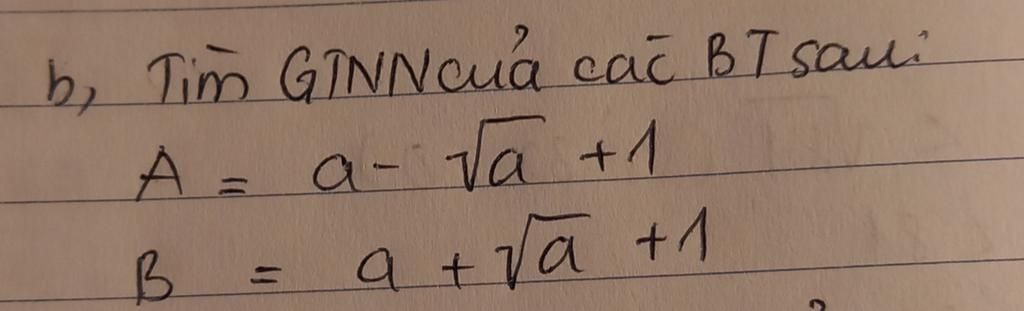 b, Tìm GTNN của các BT sau:
A = a - √a + 1
B = a + √a + 1